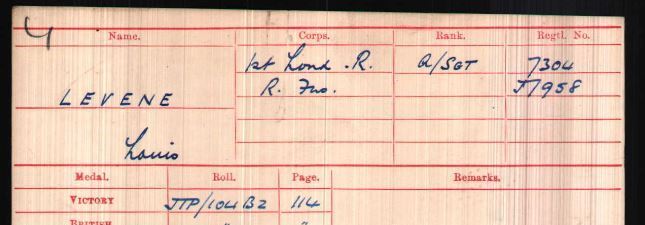 Name. Corps. Rank. Regtl. No.
1st Lond. R. A/SGT 7304
LEVENE R. Fus. J/7958
Louis
Medal. Roll. Page. Remarks.
VICTORY JTP/104 B2 114
BRITISH " "